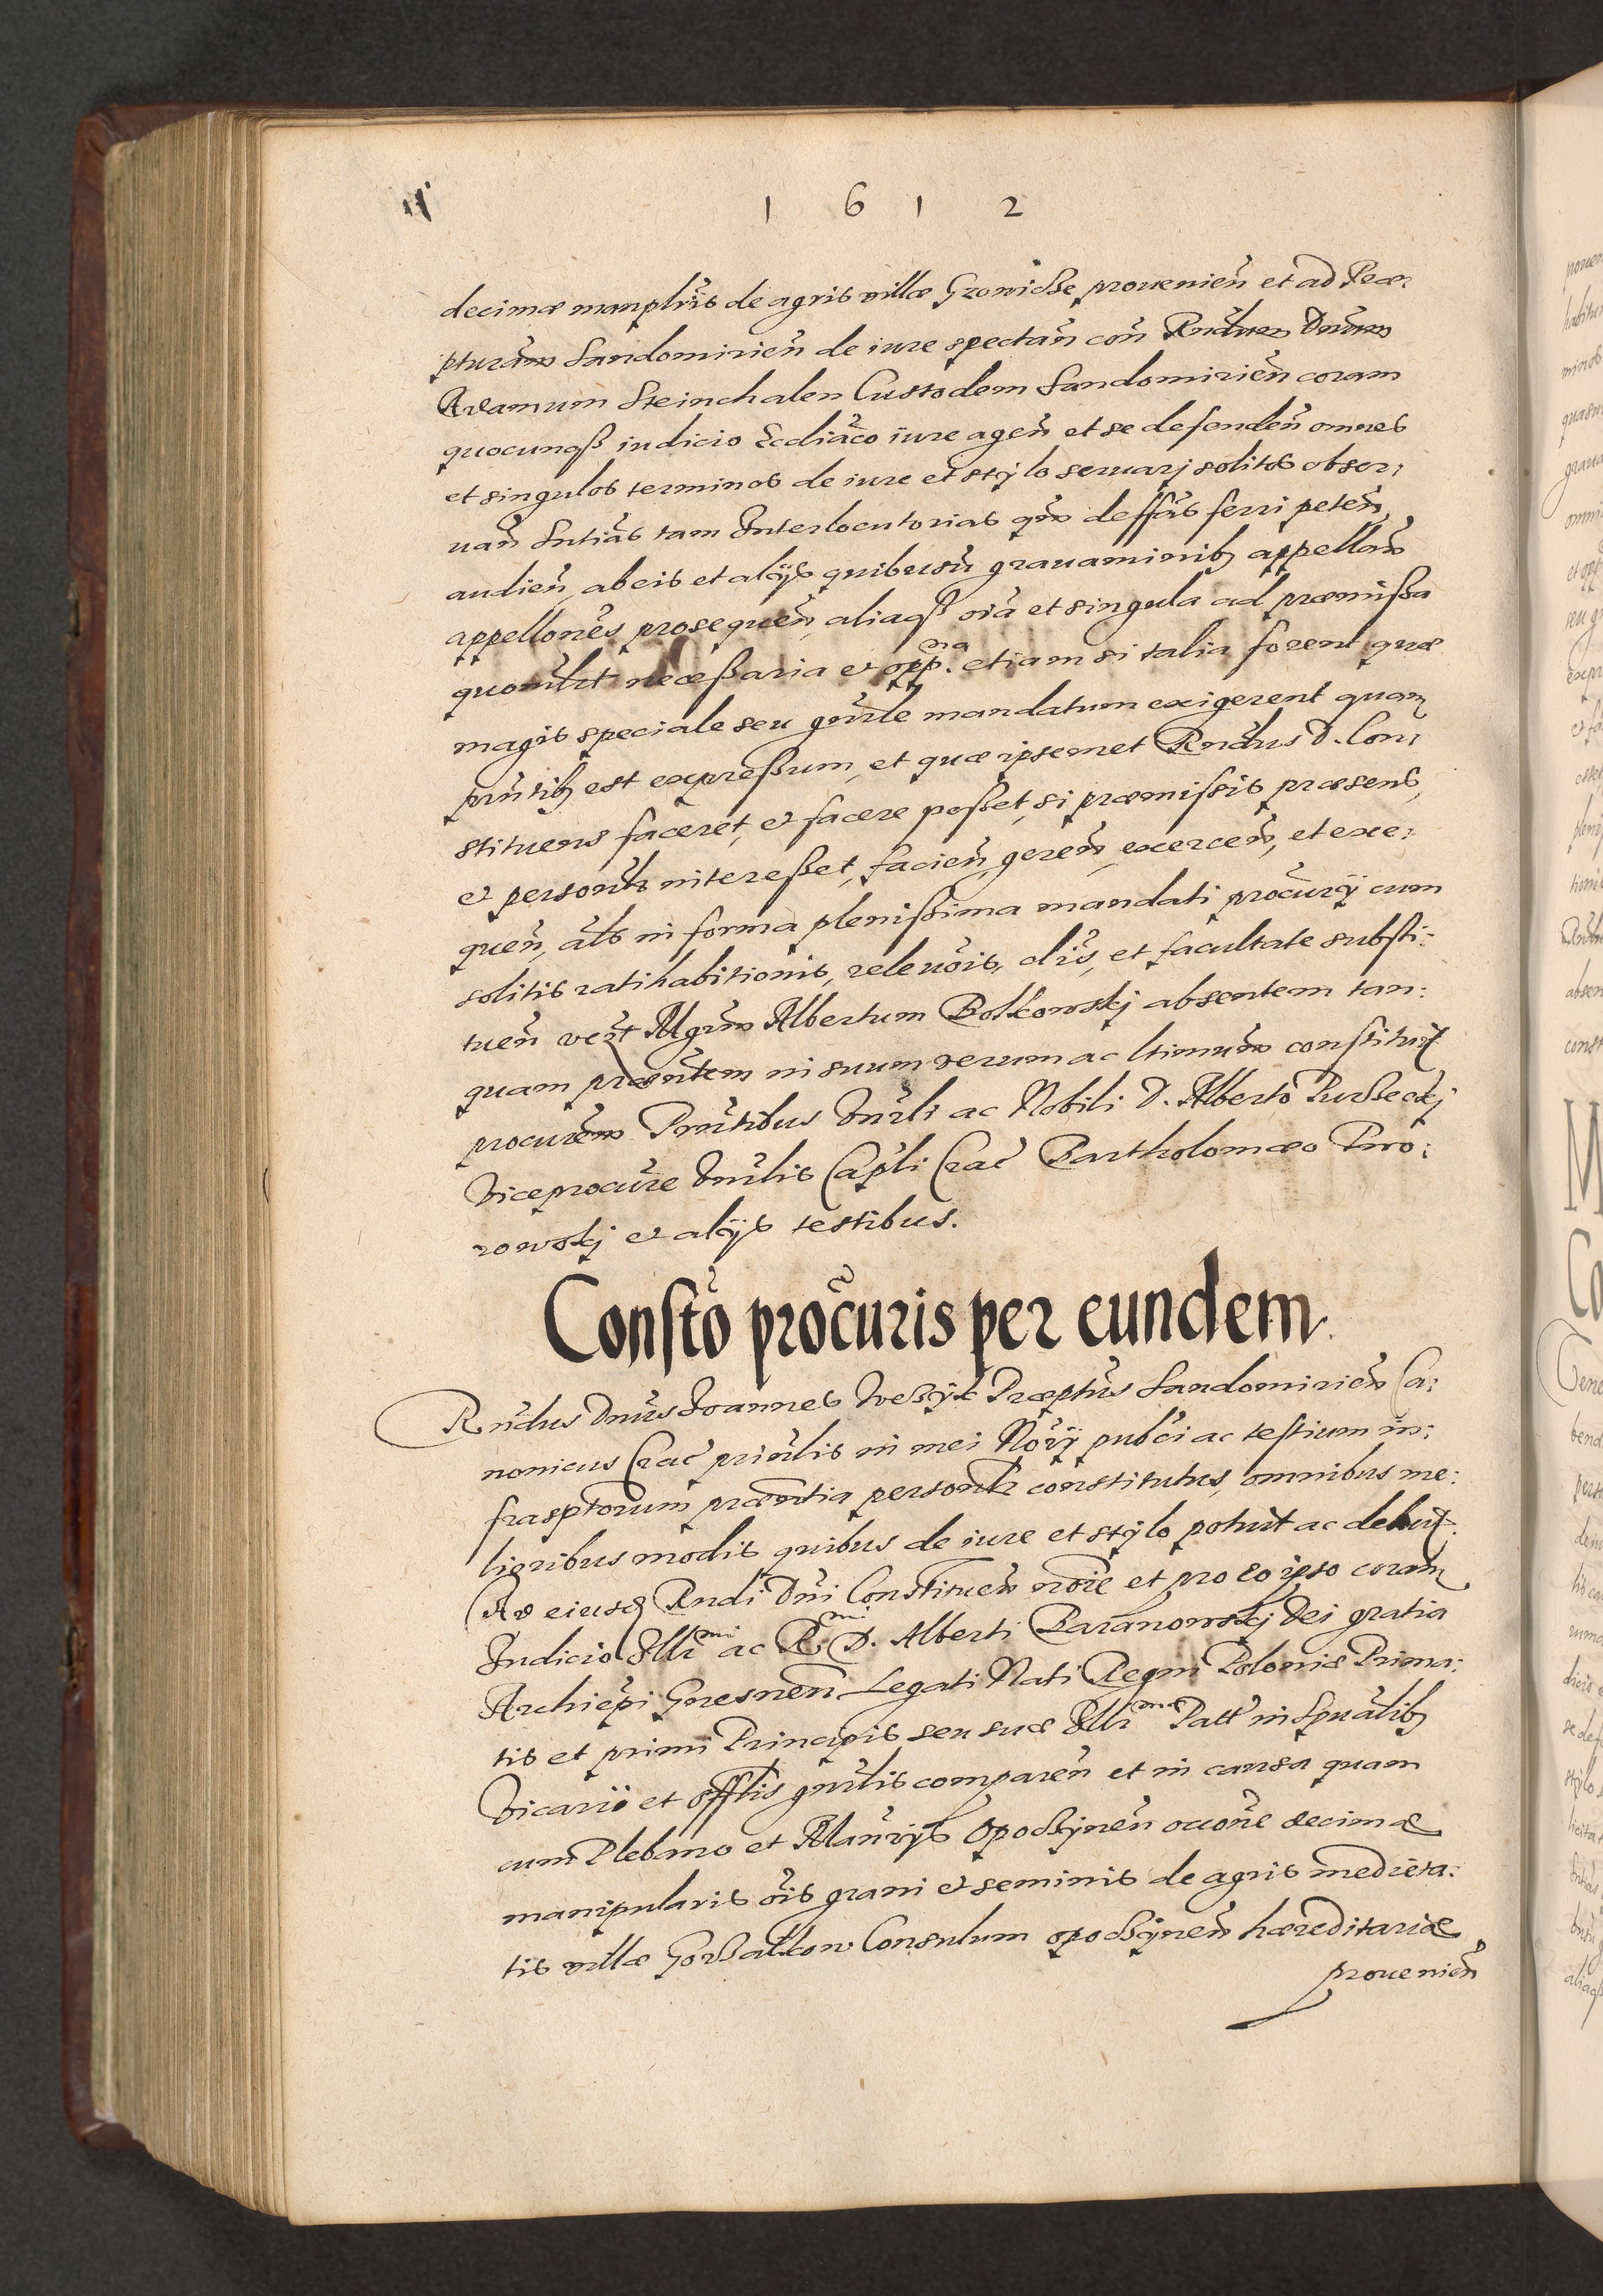 1 6 1 2
decimæ manplr̃is de agris villæ Gronicze prouenieñ et ad Præ-
pturam̃ Sandomirieñ de iure spectañ con̄ Rndum Dnum
Adamum Steinchalen Custodem Sandomirieñ coram
quocunqß iudicio Ecclĩaco iure ageñ et se defendeñ omnes
et singulos terminos de iure et stylo seruarj solitos obser:
uañ Sntiãs tam Interlocutorias qm̃ deffãs ferri peteñ,
audieñ, ab eis et alijs quibusuĩ grauaminib9 appellañ
appellones prosequeñ, aliaqß oĩa et singula ad præmißa
quomlt necæßaria et opp:na etiam si talia forent quæ
magis speciale seu gnrle mandatum exigerent quam
pntib9 est expreßum, et quæ ipsemet Rndus D. Con:
stituens faceret, et facere poßet, si præmißis præsens,
et personlr intereßet, facieñ, gereñ, exerceñ, et exe:
queñ, als in forma plenißima mandati procurij cum
solitis ratihabitionis, releuõis, clis, et facultate substi:
tueñ vent Mgrm Albertum Bolkowskj absentem tan:
quam præntem in suum verum ac ltimum constituit
procurem Pñntibus Dnrli ac Nobili D. Alberto Purßeckj
Viceprocure Dnrlis Capli Crac Bartholomæo Piro:
rowskj et alijs testibus.
Consto procuris per eundem.
Rndus Dnus Joannes Weßyk Præptus Sandomirieñ Ca:
nonicus Crac prinlis in mei Norij publci ac testium in:
frasptorum præntia personlr constitutus, omnibus me:
lioribus modis quibus de iure et stylo potuit ac debuit
Ad eiusd Rndi Dni Constitueñ noĩe et pro eo ipso coram
Iudicio Illrmi ac Rmi D. Alberti Baranowskj Dei gratia
Archiepi Gnesneñ Legati Nati Regni Poloniæ Prima:
tis et primi Principis seu suæ Illrmæ Patt in Spualib9
Vicarij et offlis gnrlis compareñ et in causa quam
cum Plebano et Mañrijs Opoczyneñ ocone decimæ
manipularis ois grani et seminis de agris medieta:
tis villæ Gorßalkow Consulum opoczyneñ hæreditariæ
prouenieñ